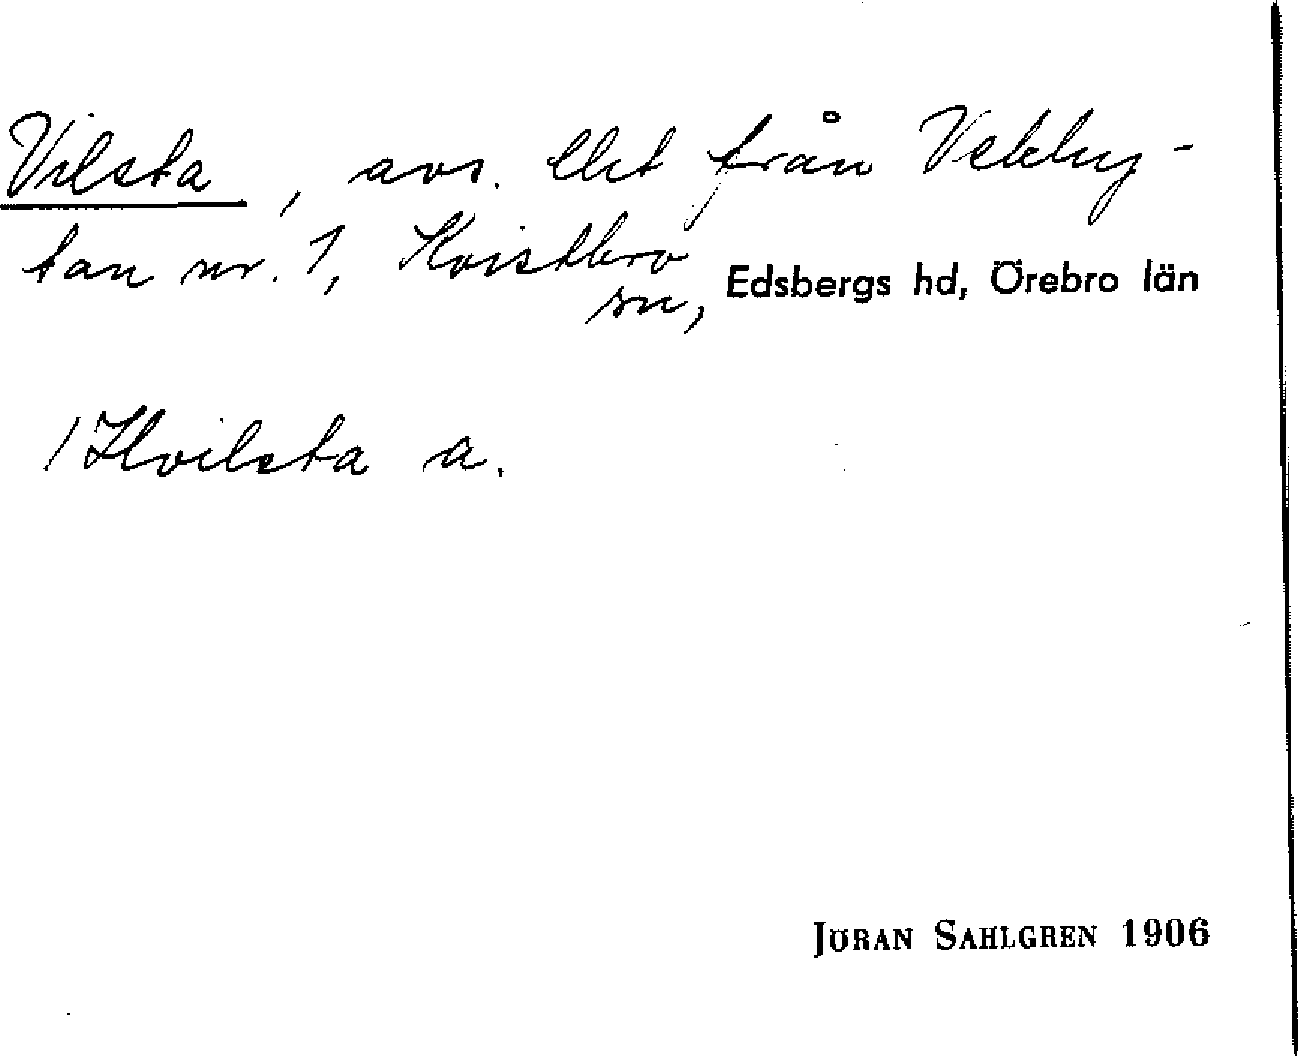 Vilsta, avs. lht från Vekhy-
tan nr. 1, Kvistbro
sn, Edsbergs hd, Örebro län
/Hvilsta a.
JÖRAN SAHLGREN 1906